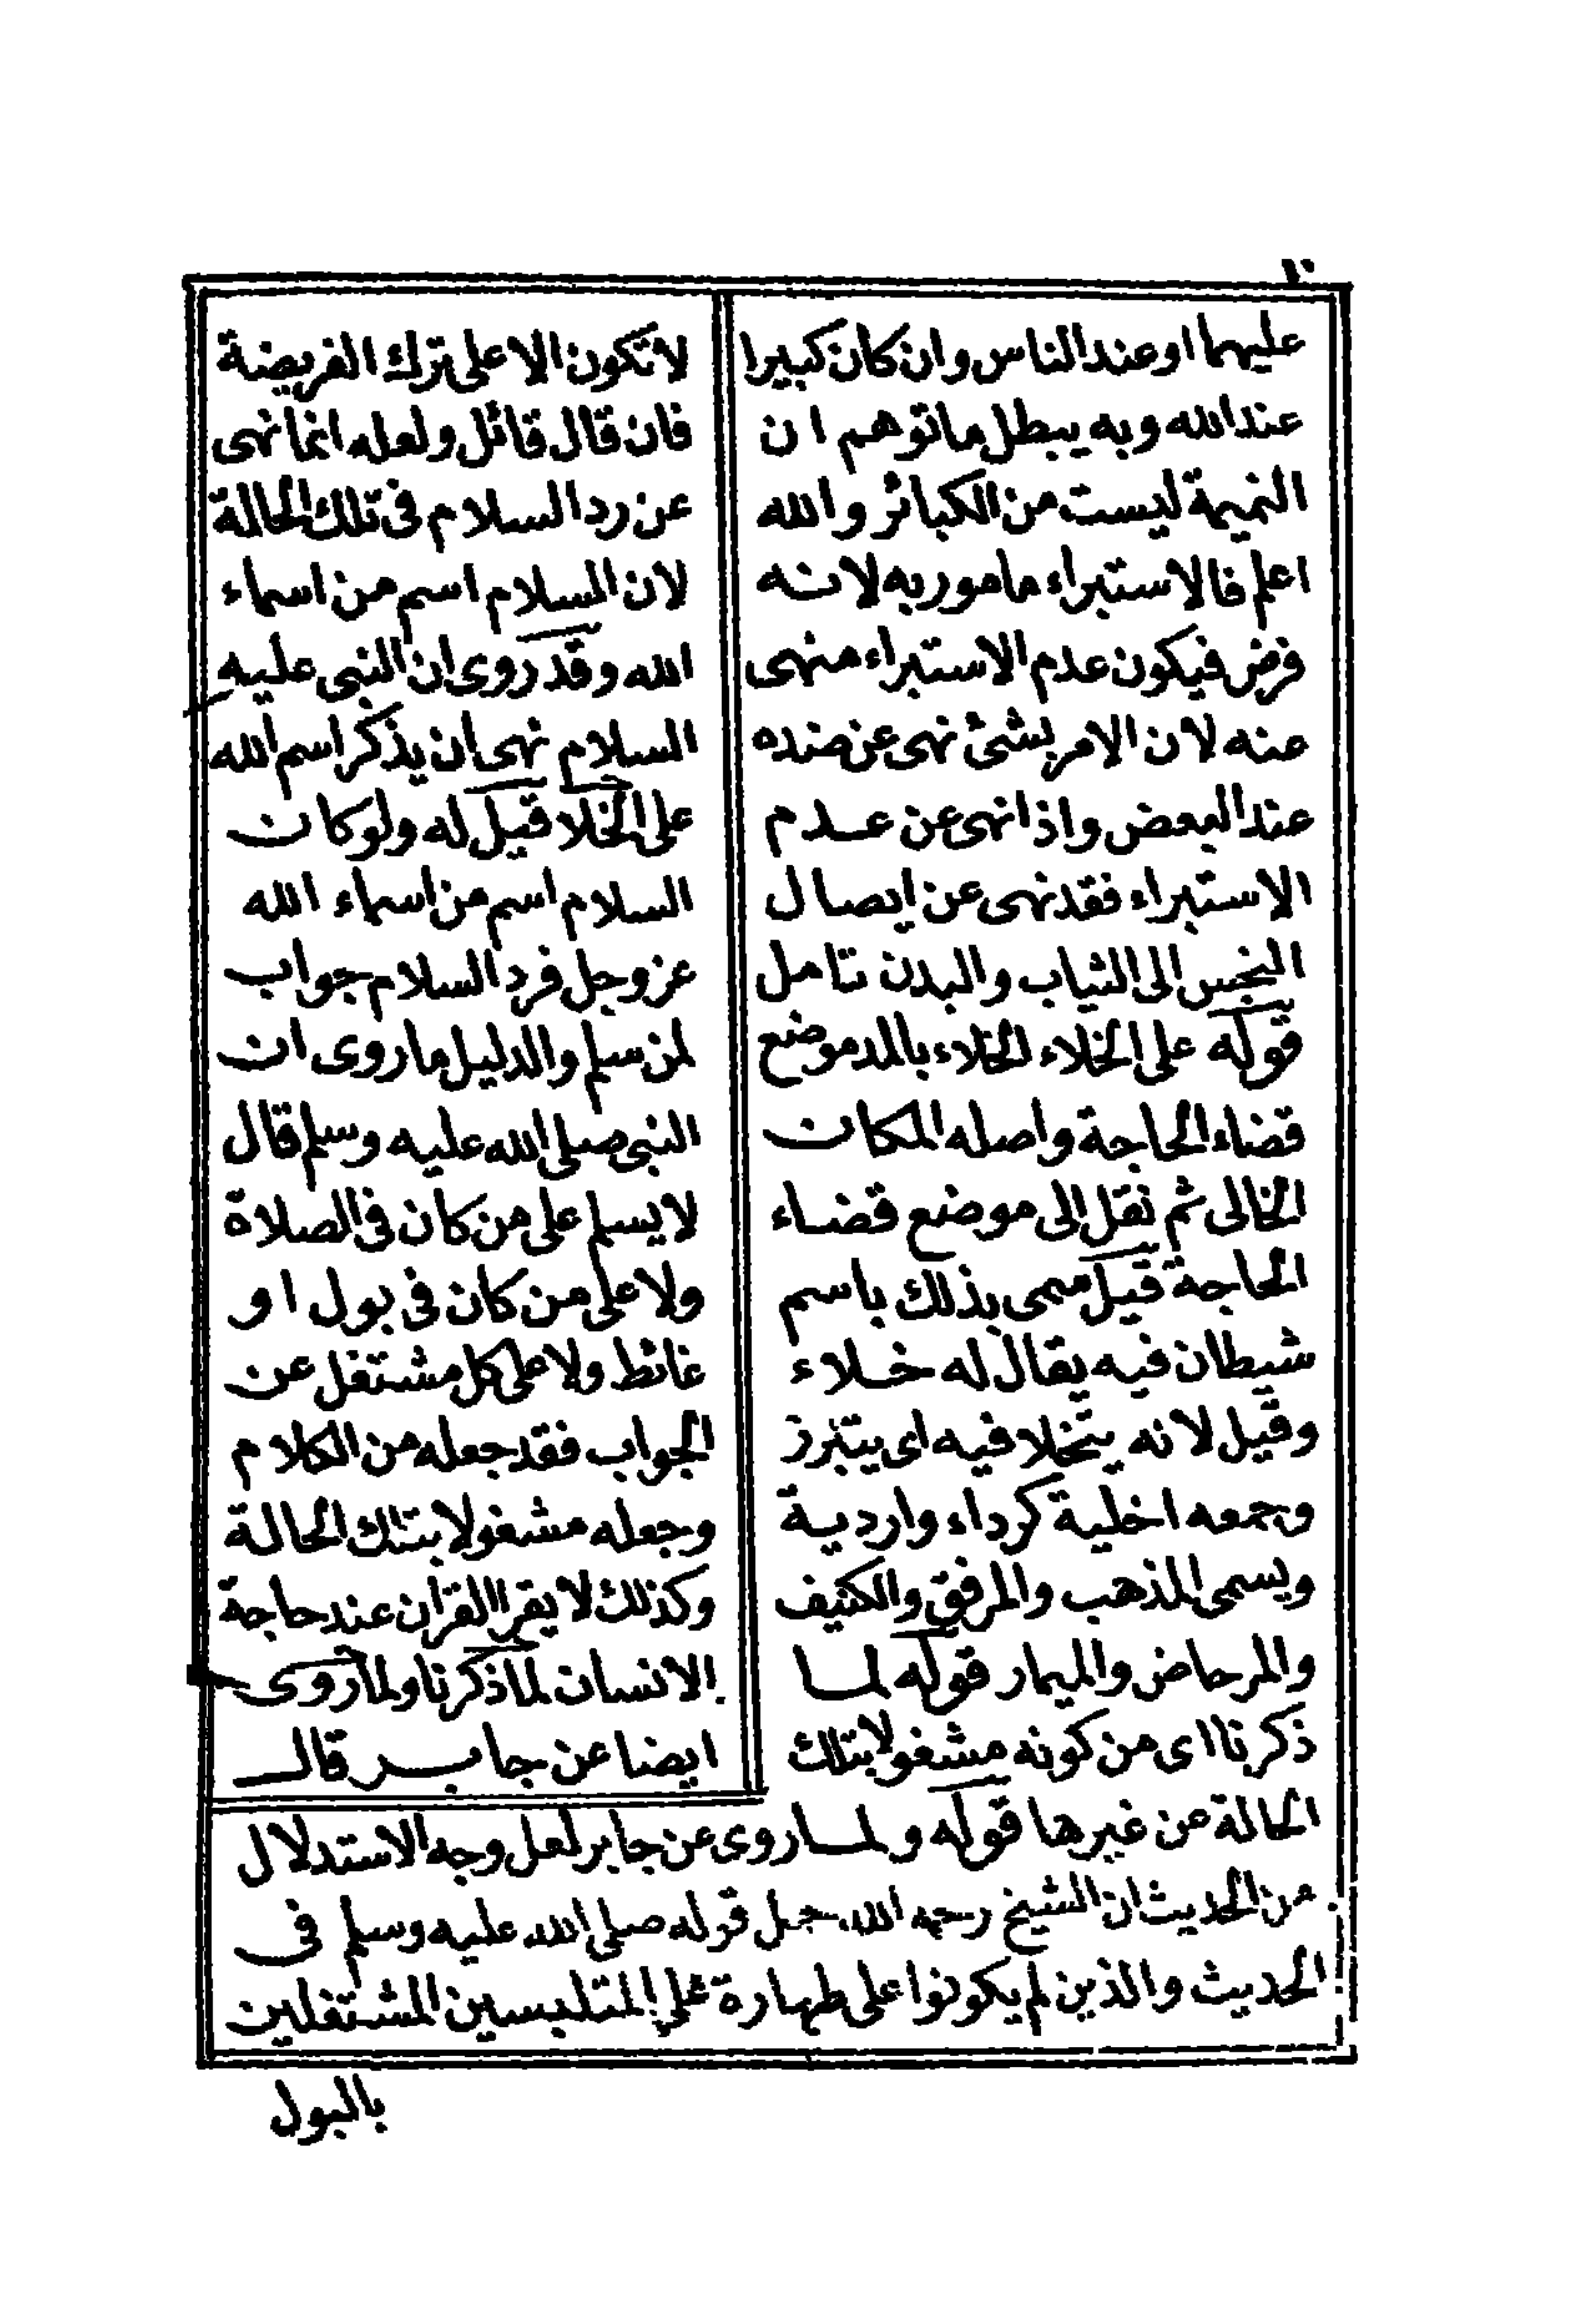 عليهما او عند الناس وان كان كبيرا
عند الله وبه يبطل ما توهم ان
النميمة ليست من الكبائر والله
اعلم فالاستبراء مامور به لانه
فرض فيكون عدم الاستبراء منهى
عنه لان الامر بشئ نهى عن ضده
عند البعض واذا نهى عن عدم
الاستبراء فقد نهى عن ايصال
النجس الى الثياب والبدن تتامل
قوله على الخلاء الخلاء بالمد موضع
قضاء الحاجة واصله المكان
الخالى ثم نقل الى موضع قضاء
الحاجة قيل سمى بذلك باسم
شيطان فيه يقال له خلاء
وقيل لانه يتخلا فيه اى يتبرز
وجمعه اخلية كرداء واردية
ويسمى المذهب والمرفق والكنيف
والمرحاض والميمار قوله لما
ذكرنا اى من كونه مشغولا بتلك
الحالة من غيرها قوله ولما روى عن جابر لعل وجه الاستدلال
من الحديث ان الشيخ رحمه الله جعل قوله صلى الله عليه وسلم فى
الحديث والذين لم يكونوا على طهارة على المتلبسين المشتغلين
لا تكون الا على ترك الفريضة
فان قال قائل ولعله انما نهى
عن رد السلام فى تلك الحالة
لان السلام اسم من اسماء
الله وقد روى ان النبى عليه
السلام نهى ان يذكر اسم الله
على الخلا قيل له ولو كان
السلام اسم من اسماء الله
عز وجل فرد السلام جواب
لمن سلم والدليل ما روى ان
النبى صلى الله عليه وسلم قال
لا يسلم على من كان فى الصلاة
ولا على من كان فى بول او
غائط ولا على كل مشتغل عن
الجواب فقد جعله من الكلام
وجعله مشغولا بتلك الحالة
وكذلك لا يقرا القران عند حاجة
الانسان لما ذكرنا ولما روى
ايضا عن جابر قال
بالبول